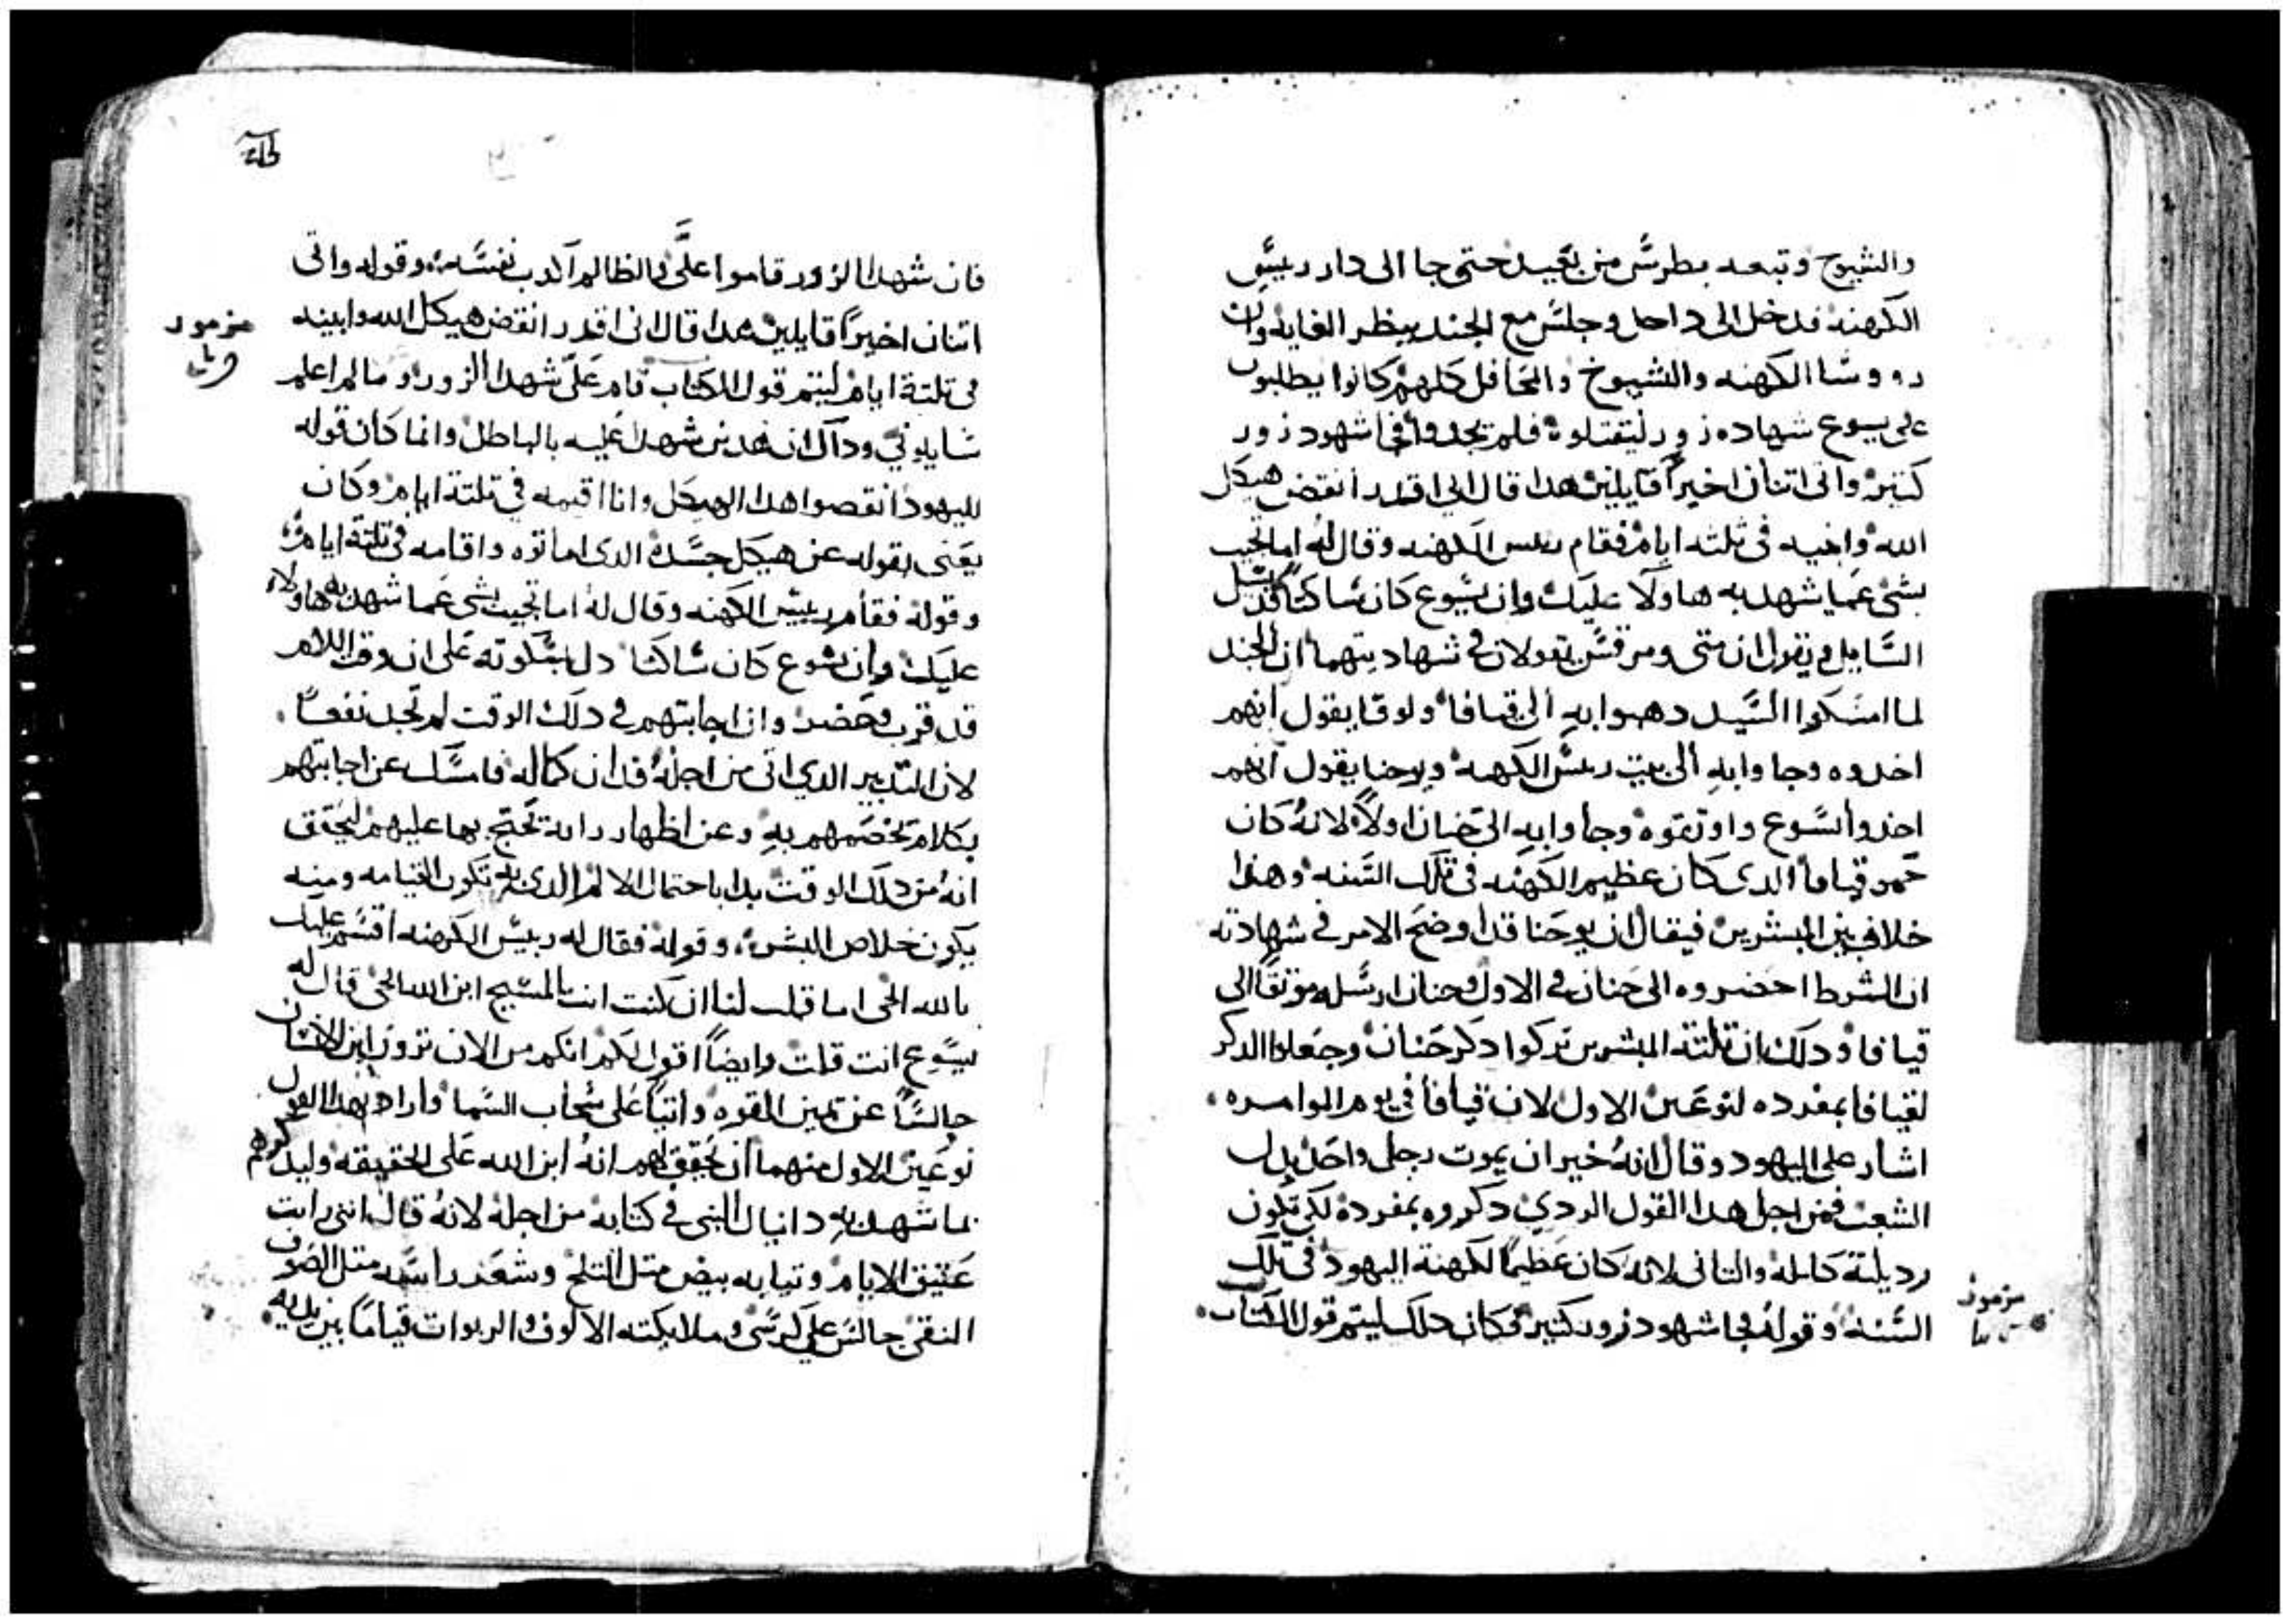 والشيوخ وتبعه بطرس من بعيد حتى جا الى دار رييس
الكهنه فدخل الى داخل وجلس مع الجند ينظر الغايه وان
رووسا الكهنه والشيوخ والمحافل كلهم كانوا يطلبون
على يسوع شهاده زور ليقتلوه فلم يجدوا فجا شهود زور
كتير واتى اتنان اخيراً قايلين هدا قال اني اقدر انقض هيكل
الله وابنيه في تلته ايام فقام رييس الكهنه وقال له اما تجيب
بشي عما شهد به هاولا عليك وان يسوع كان ساكتاً
السايل ويقول ان متى ومرقس يقولان في شهادتهما ان الجند
لما امسكوا السيد دهبوا به الى قيافا ولوقا يقول انهم
اخدوه وجاوا به الى بيت رييس الكهنه ويوحنا يقول انهم
اخدوا يسوع واوتقوه وجاوا به الى حنان اولاً لانه كان
حمو قيافا الدى كان عظيم الكهنه في تلك السنه وهدا
خلاف بين المبشرين فيقال ان يوحنا قد اوضح الامر في شهادته
ان الشرط احضروه الى حنان في الاول وحنان ارسله موتقاً الى
قيافا ودلك ان تلتة المبشرين تركوا دكر حنان وجعلوا الدكر
لقيافا بمفرده لنوعين الاول لان قيافا في يوم الموامره
اشار على اليهود وقال انه خير ان يموت رجل واحد بدل
الشعب فمن اجل هدا القول الردي دكروه بمفرده لكي تكون
رديلته كامله والتاني لانه كان عظيماً لكهنة اليهود في تلك
السنه وقوله فجا شهود زور كتير فكان دلك ليتم قول الكتاب
مزمور
فان شهدا الزور قاموا علىَّ والظالم كدب نفسه وقوله واتى
اتنان اخيراً قايلين هدا قال اني اقدر انقض هيكل الله وابنيه
في تلتة ايام ليتم قول الكتاب قام علىّ شهدا الزور وما لم اعلم
سايلوني ودلك ان هدين شهدا عليه بالباطل وانما كان قوله
لليهود انقصوا هدا الهيكل وانا اقيمه في تلتة ايام وكان
يعنى بقوله عن هيكل جسده الدى اماتوه واقامه في تلتة ايام
وقوله فقام رييس الكهنه وقال له اما تجيب بشى عما شهد به هاولاء
عليك وان يسوع كان ساكتا دل بسكوته على ان وقت الالام
قد قرب وحضر وان اجابتهم في دلك الوقت لم تجد نفعاً
لان التدبير الدي اتى من اجله قد ان كماله فامسك عن اجابتهم
بكلام يخصمهم به وعن اظهار اية يحتج بها عليهم ليحقق
انه من دلك الوقت بدا باحتمال الالام الدى به تكون القيامه ومنه
يكون خلاص البشر وقوله فقال له رييس الكهنه اقسم عليك
بالله الحى اما قلت لنا ان كنت انت المسيح ابن الله الحى قال له
يسوع انت قلت وايضاً اقول لكم انكم من الان ترون ابن الانسان
جالساً عن يمين القوه واتياً على سحاب السما واراد بهدا القول
نوعين الاول منهما ان يحقق لهم انه ابن الله على الحقيقه وليدكرهم
بما شهد به دانيال النبى في كتابه من اجله لانه قال اننى رايت
عتيق الايام وتيابه بيض متل التلج وشعر راسه متل الصوف
النقى جالس على كرسى وملايكته الالوف والربوات قياماً بين يديه
مزمور